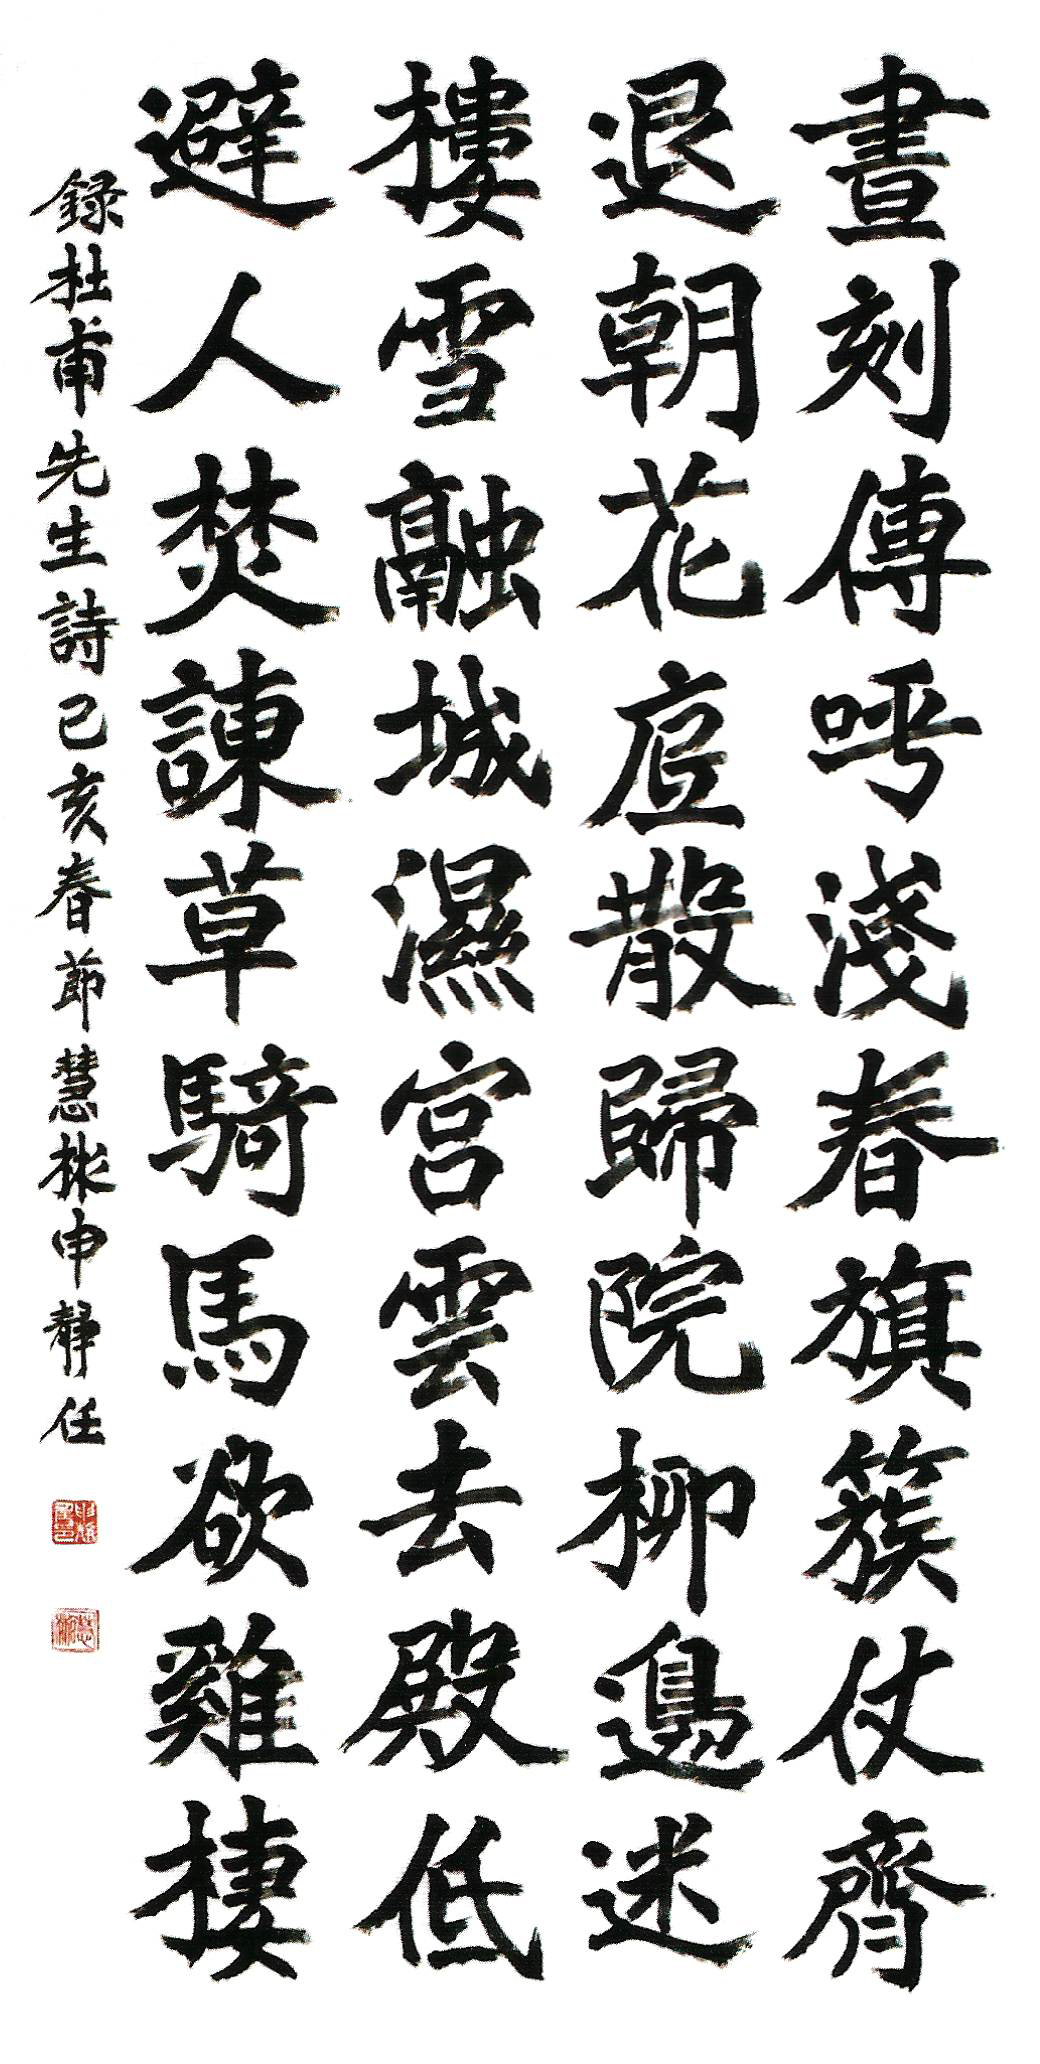 晝刻傳呼淺春旗簇仗齊
退朝花底散歸院柳邊迷
樓雪融城濕宮雲去殿低
避人焚諫草騎馬欲雞棲
錄杜甫先生詩己亥春節慧彬申靜任